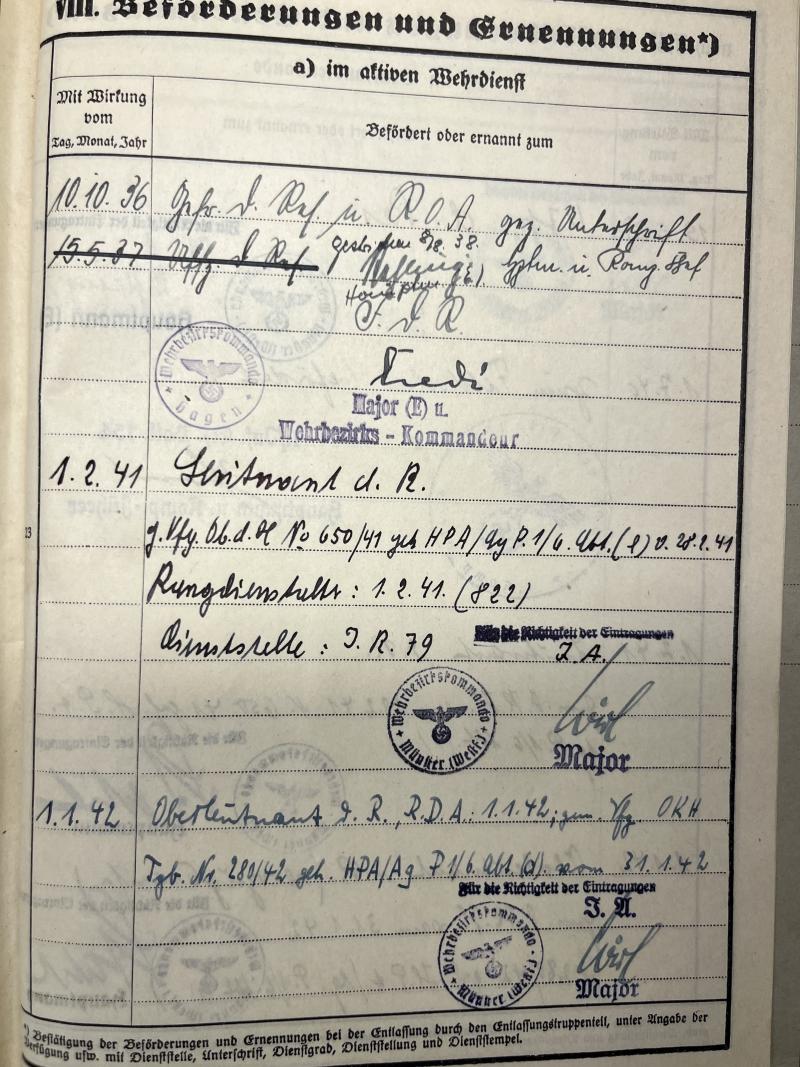 VIII. Beförderungen und Ernennungen*)
a) im aktiven Wehrdienst
Mit Wirkung vom Tag, Monat, Jahr
Befördert oder ernannt zum
10.10.36 Gefr. d. Res. u. R.O.A. gez. Unterschrift
15.5.37 Uffz. d. Res. gestrichen 38. Hptm. u. Komp. Chef
Hauptm
F. d. R.
Wehrbezirkskommando Hagen
Major (E) u.
Wehrbezirks - Kommandeur
1.2.41 Leutnant d. R.
g. Vfg. Ob. d. H. No 650/41 geh HPA/Ag P.1/6. Abt. (e) v. 28.2.41
13
Rangdienstalter: 1.2.41. (822)
Dienststelle: I.R. 79
Für die Richtigkeit der Eintragungen
I.A.
Wehrbezirkskommando Münster (Westf.)
Major
1.1.42 Oberleutnant d. R., R.D.A.: 1.1.42; gem. Vfg. OKH
Tgb. Nr. 280/42 geh. HPA/Ag P 1/6. Abt. (d) vom 31.1.42
Für die Richtigkeit der Eintragungen
I. A.
Wehrbezirkskommando Münster (Westf.)
Major
*) Bestätigung der Beförderungen und Ernennungen bei der Entlassung durch den Entlassungstruppenteil, unter Angabe der
Verfügung usw. mit Dienststelle, Unterschrift, Dienstgrad, Dienststellung und Dienststempel.